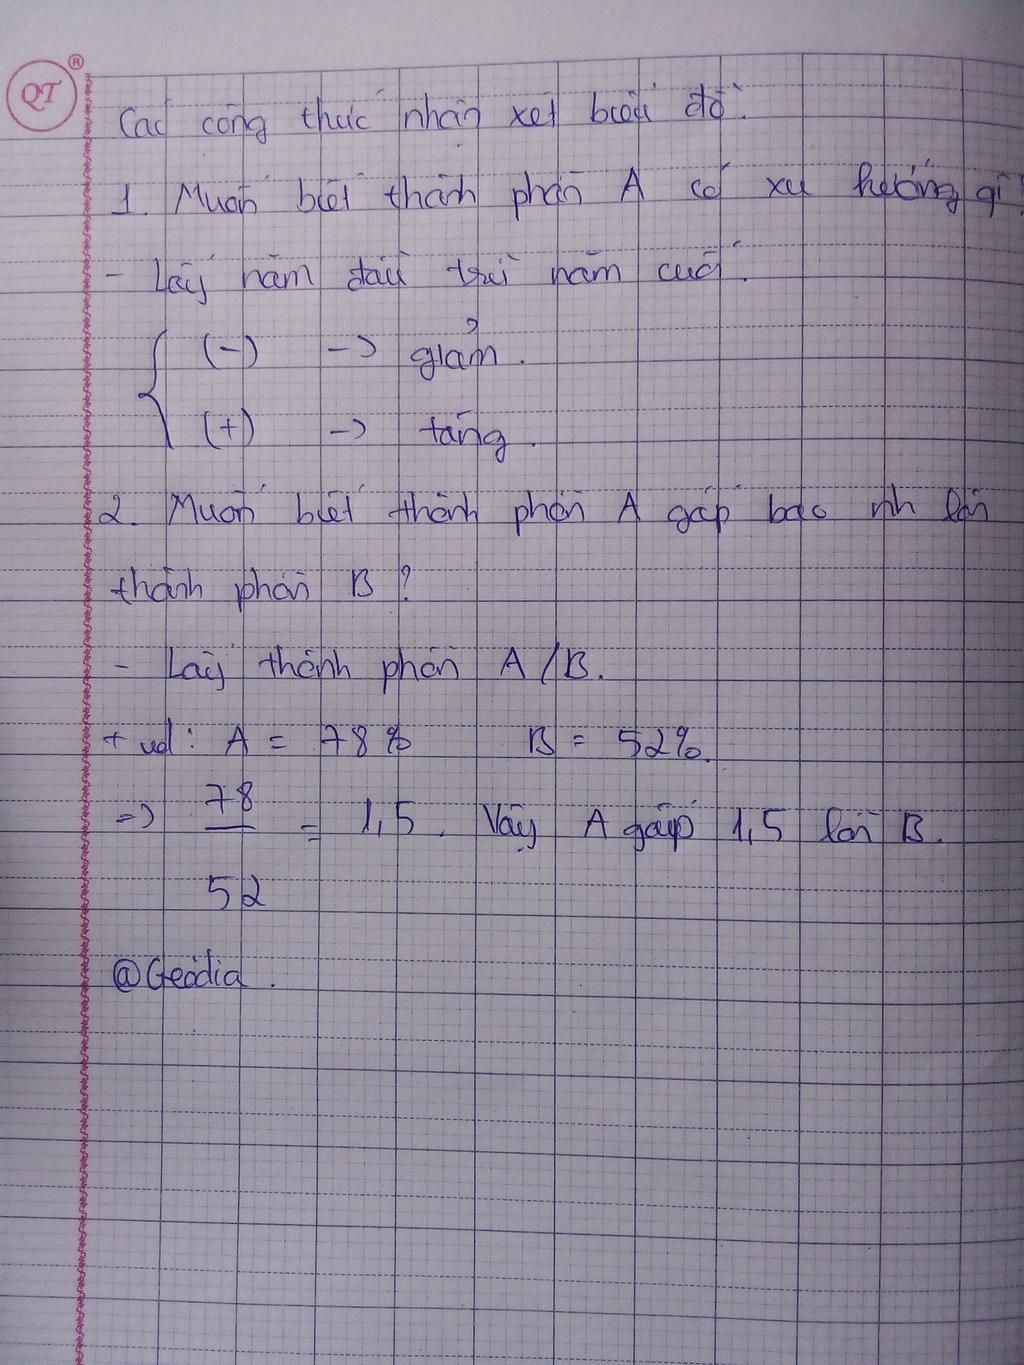 QT ®
Các công thức nhận xét biểu đồ.
1. Muốn biết thành phần A có xu hướng gì?
- Lấy năm đầu trừ năm cuối.
(-) -> giảm.
(+) -> tăng.
2. Muốn biết thành phần A gấp bao nh lần
thành phần B?
- Lấy thành phần A/B.
+ vd: A = 78% B = 52%.
=> 78/52 = 1,5. Vậy A gấp 1,5 lần B.
@Geodia.